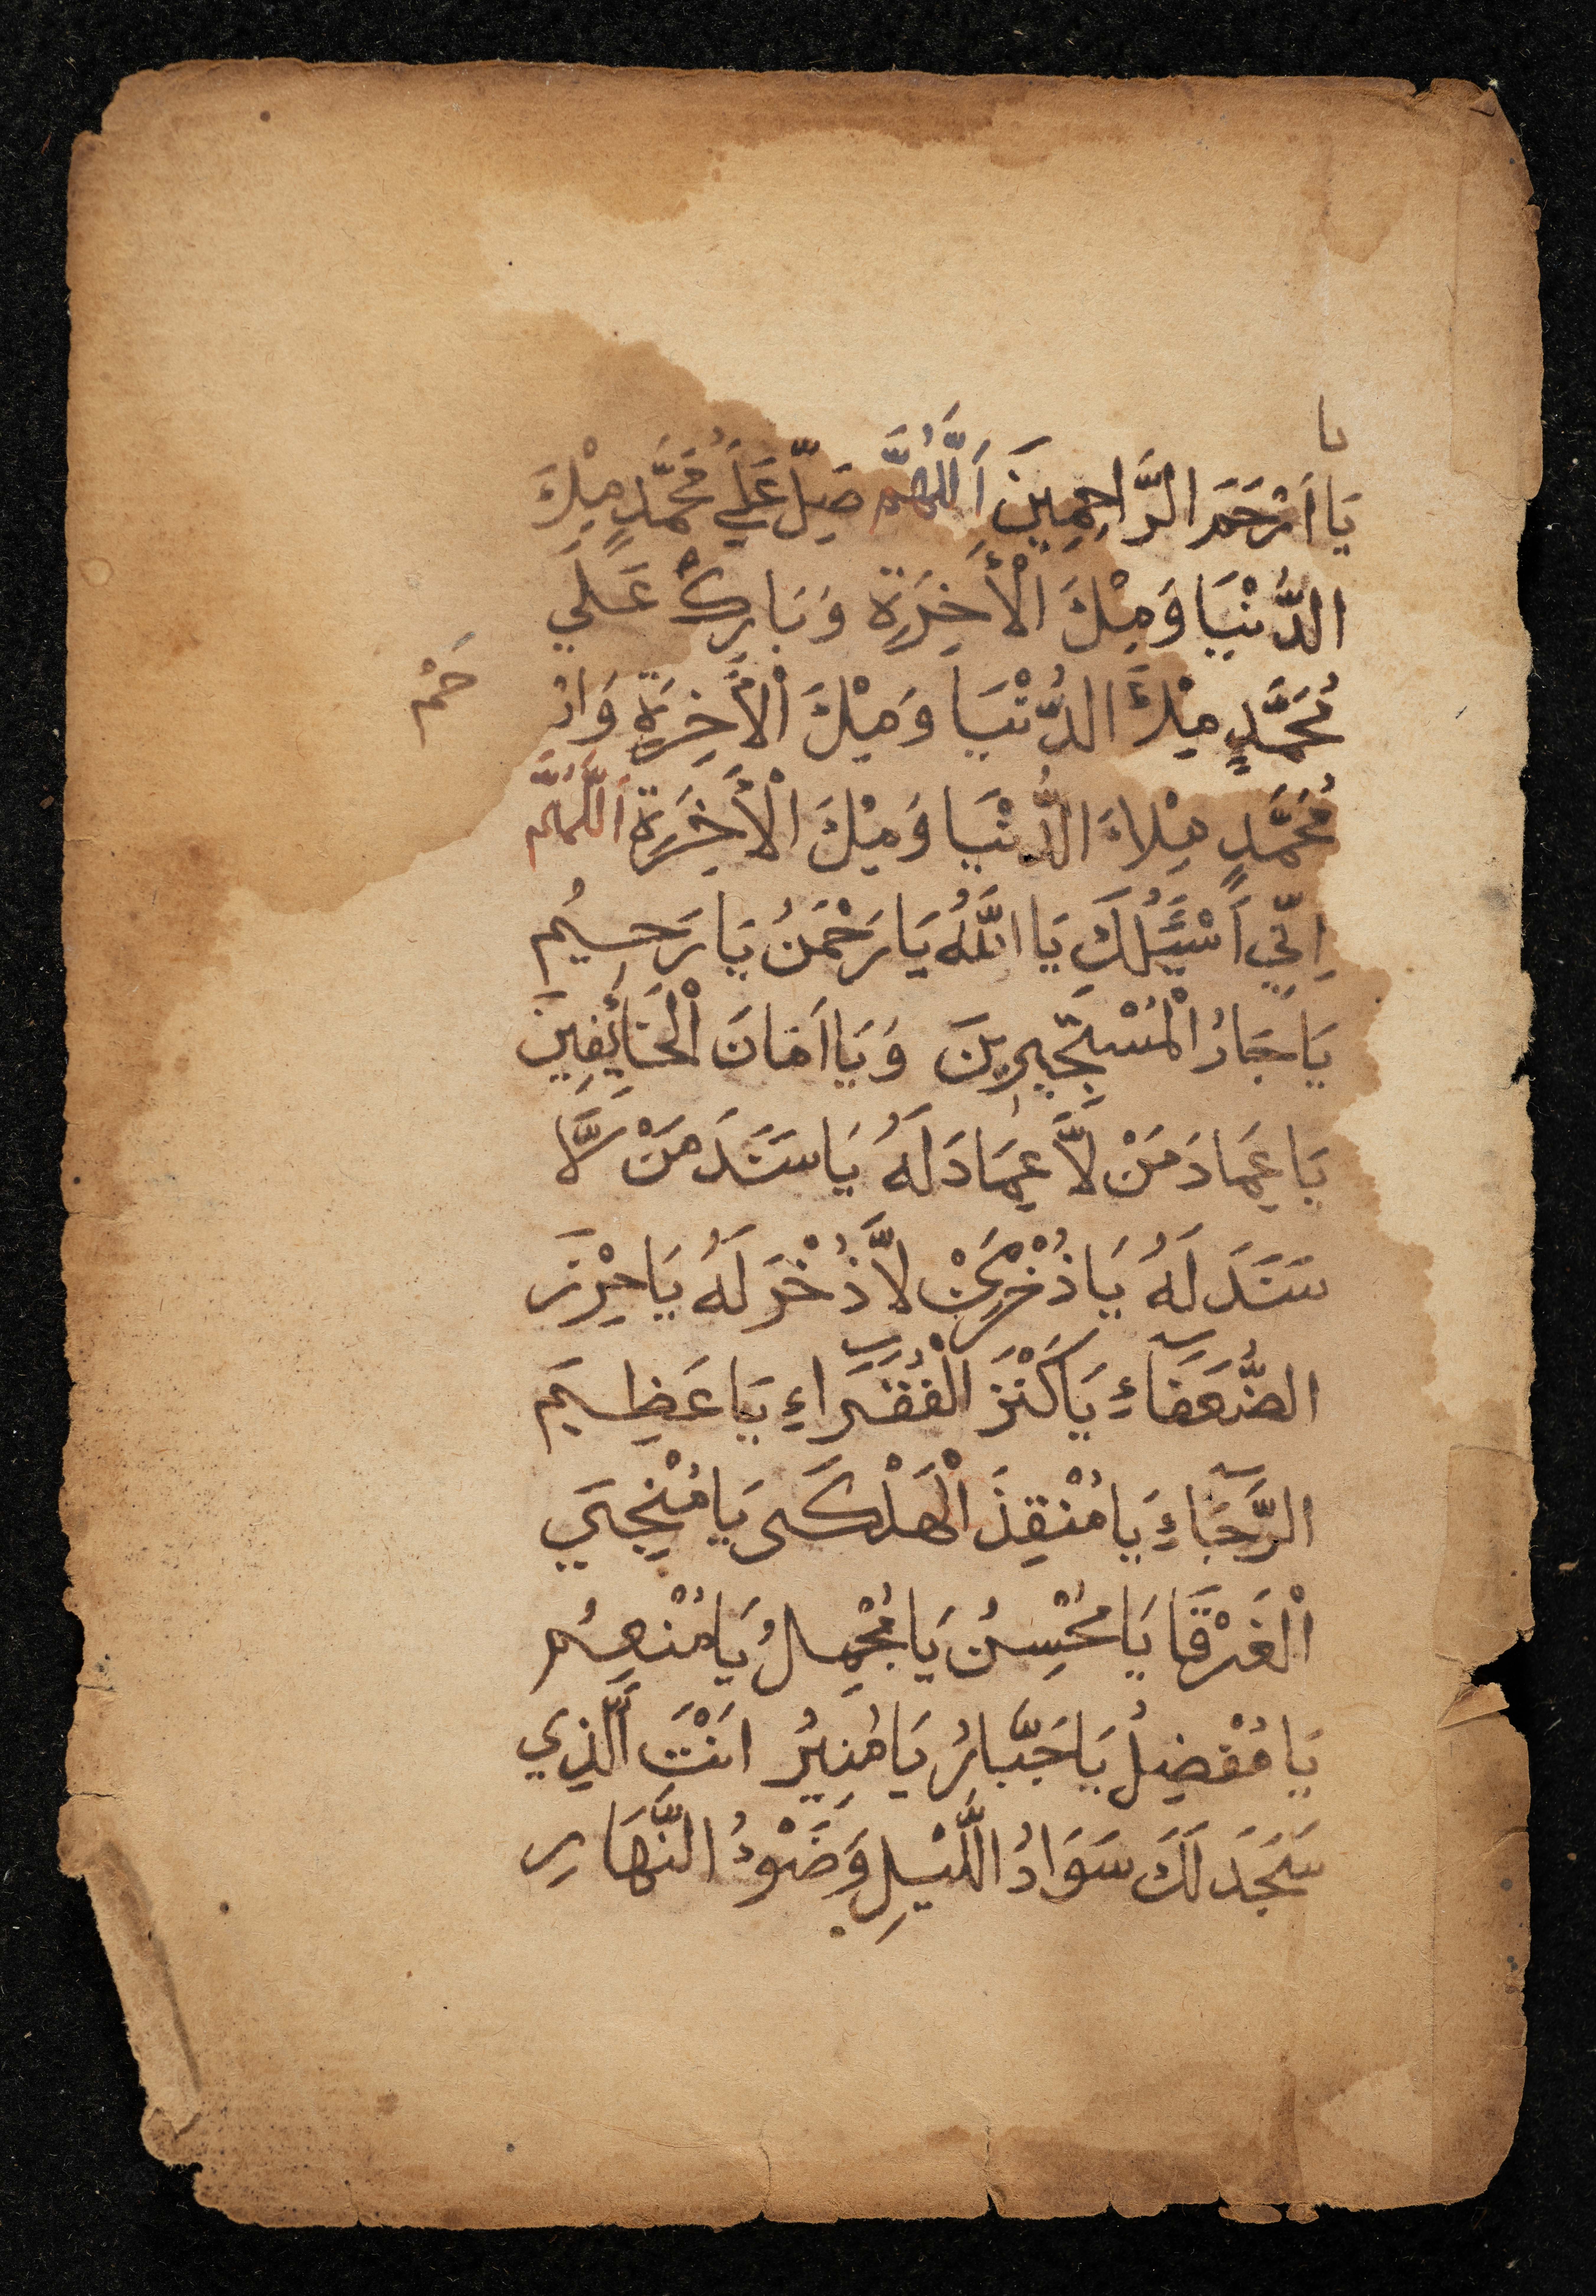 يا
يَا اَرْحَمَ الرَّاحِمِينَ اَللَّهُمَّ صَلِّ عَلَي مُحَمَّدٍ مِلْءَ
الدُّنْيَا وَمِلْءَ الْأَخِرَةِ وَبَارِكْ عَلَي
مُحَمَّدٍ مِلْءَ الدُّنْيَا وَمِلْءَ الْأَخِرَةِ وَارْ
حَمْ
مُحَمَّدٍ مِلْاءَ الدُّنْيَا وَمِلْءَ الْأَخِرَةِ اَللَّهُمَّ
اِنِّي اَسْئَلُكَ يَا اللَّهُ يَا رَحْمَنُ يَا رَحِيمُ
يَا جَارُ الْمُسْتَجِيرِينَ وَيَا اَمَانَ الْخَائِفِينَ
يَا عِمَادَ مَنْ لَّا عِمَادَ لَهُ يَا سَنَدَ مَنْ لَّا
سَنَدَ لَهُ يَا ذُخْرَ مَنْ لَّا ذُخْرَ لَهُ يَا حِرْزَ
الضُّعَفَآءِ يَا كَنْزَ الْفُقَرَآءِ يَا عَظِيمَ
الرَّجَآءِ يَا مُنْقِذَ الْهَلْكَى يَا مُنْجِيَ
الْغَرْقَا يَا مُحْسِنُ يَا مُجْمِلُ يَا مُنْعِمُ
يَا مُفْضِلُ يَا جَبَّارُ يَا مُنِيرُ اَنْتَ اَلَّذِي
سَجَدَ لَكَ سَوَادُ اللَّيْلِ وَضَوْءُ النَّهَارِ